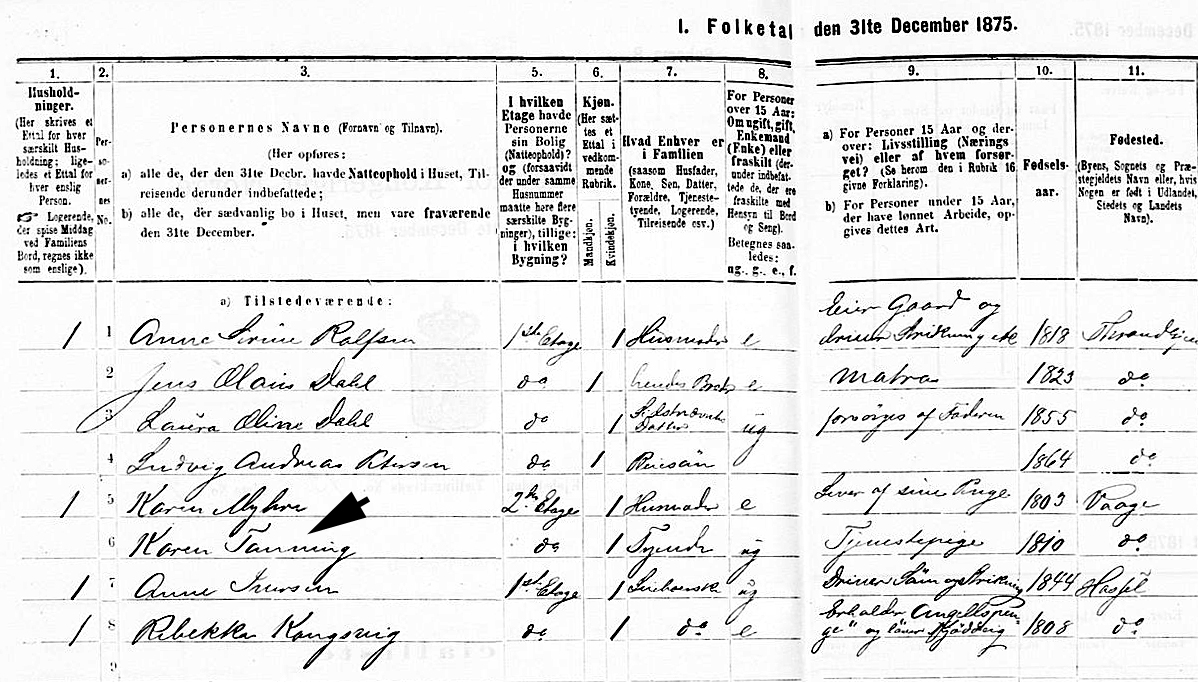 I. Folketal den 31te December 1875.
1. 2. 3. 5. 6. 7. 8. 9. 10. 11.
Hushold-
ninger.
(Her skrives et
Ettal for hver
særskilt Hus-
holdning; lige-
ledes et Ettal for
hver enslig
Person.
☞ Logerende,
der spise Middag
ved Familiens
Bord, regnes ikke
som enslige).
Per-
so-
ner-
nes
No.
Personernes Navne (Fornavn og Tilnavn).
(Her opføres:
a) alle de, der den 31te Decbr. havde Natteophold i Huset, Til-
reisende derunder indbefattede;
b) alle de, der sædvanlig bo i Huset, men vare fraværende
den 31te December.
I hvilken
Etage havde
Personerne
sin Bolig
(Natteophold)?
og (forsaavidt
der under samme
Husnummer
maatte høre flere
særskilte Byg-
ninger), tillige:
i hvilken
Bygning?
Kjøn.
(Her sæt-
tes et
Ettal i
vedkom-
mende
Rubrik.
Mandkjøn.
Kvindekjøn.
Hvad Enhver er
i Familien
(saasom Husfader,
Kone, Søn, Datter,
Forældre, Tjeneste-
tyende, Logerende,
Tilreisende osv.)
For Personer
over 15 Aar:
Om ugift, gift,
Enkemand
(Enke) eller
fraskilt (der-
under indbefat-
tede de, der ere
fraskilte med
Hensyn til Bord
og Seng).
Betegnes saa-
ledes:
ug., g., e., f.
a) For Personer 15 Aar og der-
over: Livsstilling (Nærings
vei) eller af hvem forsør-
get? (Se herom den i Rubrik 16
givne Forklaring).
b) For Personer under 15 Aar,
der have lønnet Arbeide, op-
gives dettes Art.
Fødsels-
aar.
Fødested.
(Byens, Sognets og Præ-
stegjeldets Navn eller, hvis
Nogen er født i Udlandet,
Stedets og Landets
Navn).
a) Tilstedeværende:
Eier Gaard og
1 1 Anne Serine Rolfsen 1ste Etage 1 Husmoder e driver Strikning etc 1818
2 Jens Olaus Dahl do 1 hendes Broder e Matros 1823 do
3 Laura Oline Dahl do 1 Datter ug forsørges af Faderen 1855 do
4 Ludvig Andreas Petersen do 1 Pleiesøn 1864 do
1 5 Karen Myhre 2den Etage 1 Husmoder e Lever af sine Penge 1803 Vaage
6 Karen Tanning do 1 Tyende ug Tjenestepige 1810 do
1 7 Anne Iversen 1ste Etage 1 ug Driver Søm og Strikning 1844 Hassel
1 8 Rebekka Kongsvig do 1 do e Erholder Angells Pen-
ge og 1808 do
9